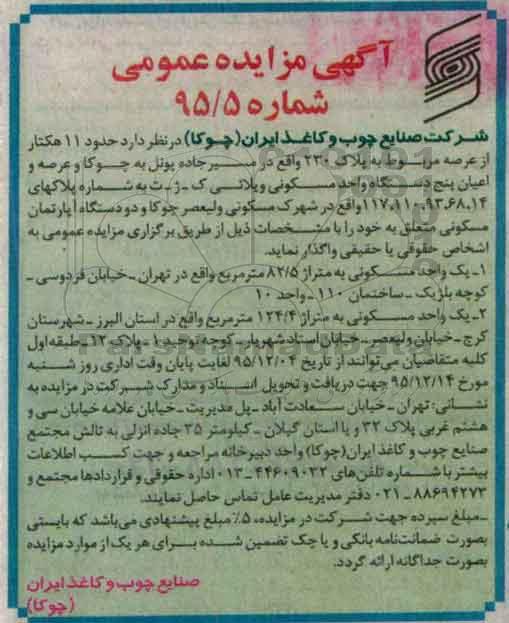 آگهی مزایده عمومی
شماره ۹۵/۵
شرکت صنایع چوب و کاغذ ایران (چوکا) در نظر دارد حدود ۱۱ هکتار
از عرصه مربوط به پلاک ۲۳۰ واقع در مسیر جاده پونل به چوکا و عرصه و
اعیان پنج دستگاه واحد مسکونی ویلائی ک - ژ - ث به شماره پلاکهای
۱۱۷،۱۱۰،۹۳،۶۸،۱۴ واقع در شهرک مسکونی ولیعصر چوکا و دو دستگاه آپارتمان
مسکونی متعلق به خود را با مشخصات ذیل از طریق برگزاری مزایده عمومی به
اشخاص حقوقی یا حقیقی واگذار نماید.
۱ـ یک واحد مسکونی به متراژ ۸۲/۵ مترمربع واقع در تهران ـ خیابان فردوسی ـ
کوچه بلژیک ـ ساختمان ۱۱۰ ـ واحد ۱۰
۲ـ یک واحد مسکونی به متراژ ۱۲۴/۴ مترمربع واقع در استان البرز ـ شهرستان
کرج ـ خیابان ولیعصر ـ خیابان استاد شهریار ـ کوچه توحید ۱ ـ پلاک ۱۲ ـ طبقه اول
کلیه متقاضیان می‌توانند از تاریخ ۹۵/۱۲/۰۴ لغایت پایان وقت اداری روز شنبه
مورخ ۹۵/۱۲/۱۴ جهت دریافت و تحویل اسناد و مدارک شرکت در مزایده به
نشانی: تهران ـ خیابان سعادت آباد ـ پل مدیریت ـ خیابان علامه خیابان سی و
هشتم غربی پلاک ۳۲ و یا استان گیلان ـ کیلومتر ۳۵ جاده انزلی به تالش مجتمع
صنایع چوب و کاغذ ایران (چوکا) واحد دبیرخانه مراجعه و جهت کسب اطلاعات
بیشتر با شماره تلفن‌های ۴۴۶۰۹۰۳۲ ـ ۰۱۳ اداره حقوقی و قراردادها مجتمع و
۸۸۶۹۴۲۷۳ ـ ۰۲۱ دفتر مدیریت عامل تماس حاصل نمایند.
ـ مبلغ سپرده جهت شرکت در مزایده، ۵٪ مبلغ پیشنهادی می‌باشد که بایستی
بصورت ضمانت‌نامه بانکی و یا چک تضمین شده برای هر یک از موارد مزایده
بصورت جداگانه ارائه گردد.
صنایع چوب و کاغذ ایران
(چوکا)